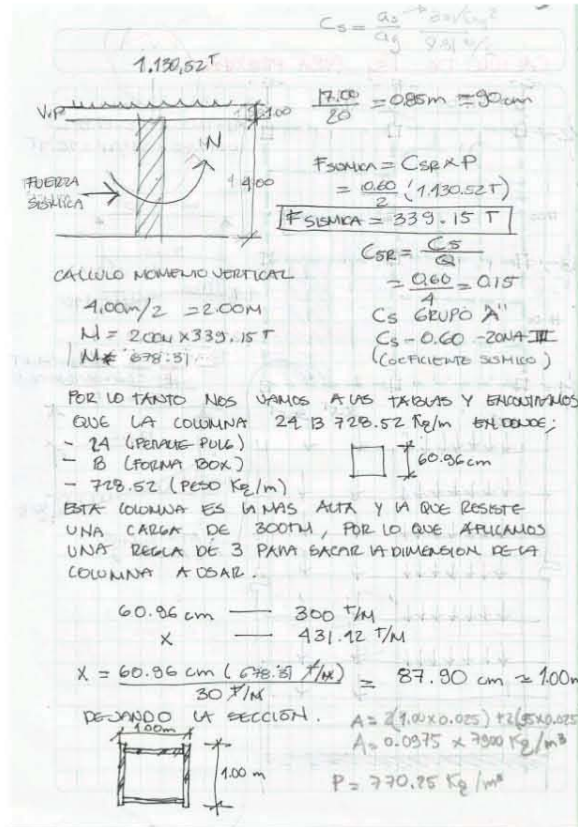 Cs = as/ag
1.130,52 T
V.P
1.00
17.00/20 = 0.85m ≅ 90cm
M
FUERZA SISMICA
4.00
FSISMICA = CSR x P
= 0.60/2 (1.130.52T)
FSISMICA = 339.15 T
CSR = CS/Q
= 0.60/4 = 0.15
CALCULO MOMENTO VERTICAL
4.00m/2 = 2.00M
M = 2.00M x 339.15 T
M = 678.31
CS GRUPO "A"
CS - 0.60 - ZONA III
(COEFICIENTE SISMICO)
POR LO TANTO NOS VAMOS A LAS TABLAS Y ENCONTRAMOS
QUE LA COLUMNA 24 B 728.52 Kg/m EN DONDE;
- 24 (PERALTE PULG)
- B (FORMA BOX)
- 728.52 (PESO Kg/m)
60.96cm
ESTA COLUMNA ES LA MAS ALTA Y LA QUE RESISTE
UNA CARGA DE 300TM, POR LO QUE APLICAMOS
UNA REGLA DE 3 PARA SACAR LA DIMENSION DE LA
COLUMNA A USAR.
60.96 cm — 300 T/M
X — 431.92 T/M
X = 60.96 cm (678.31 T/M)/30 T/M = 87.90 cm ≅ 1.00m
DEJANDO LA SECCIÓN.
1.00m
1.00 m
A = 2(1.00x0.025) + 2(.95x0.025
A = 0.0975 x 7900 Kg/m³
P = 770.25 Kg/m³